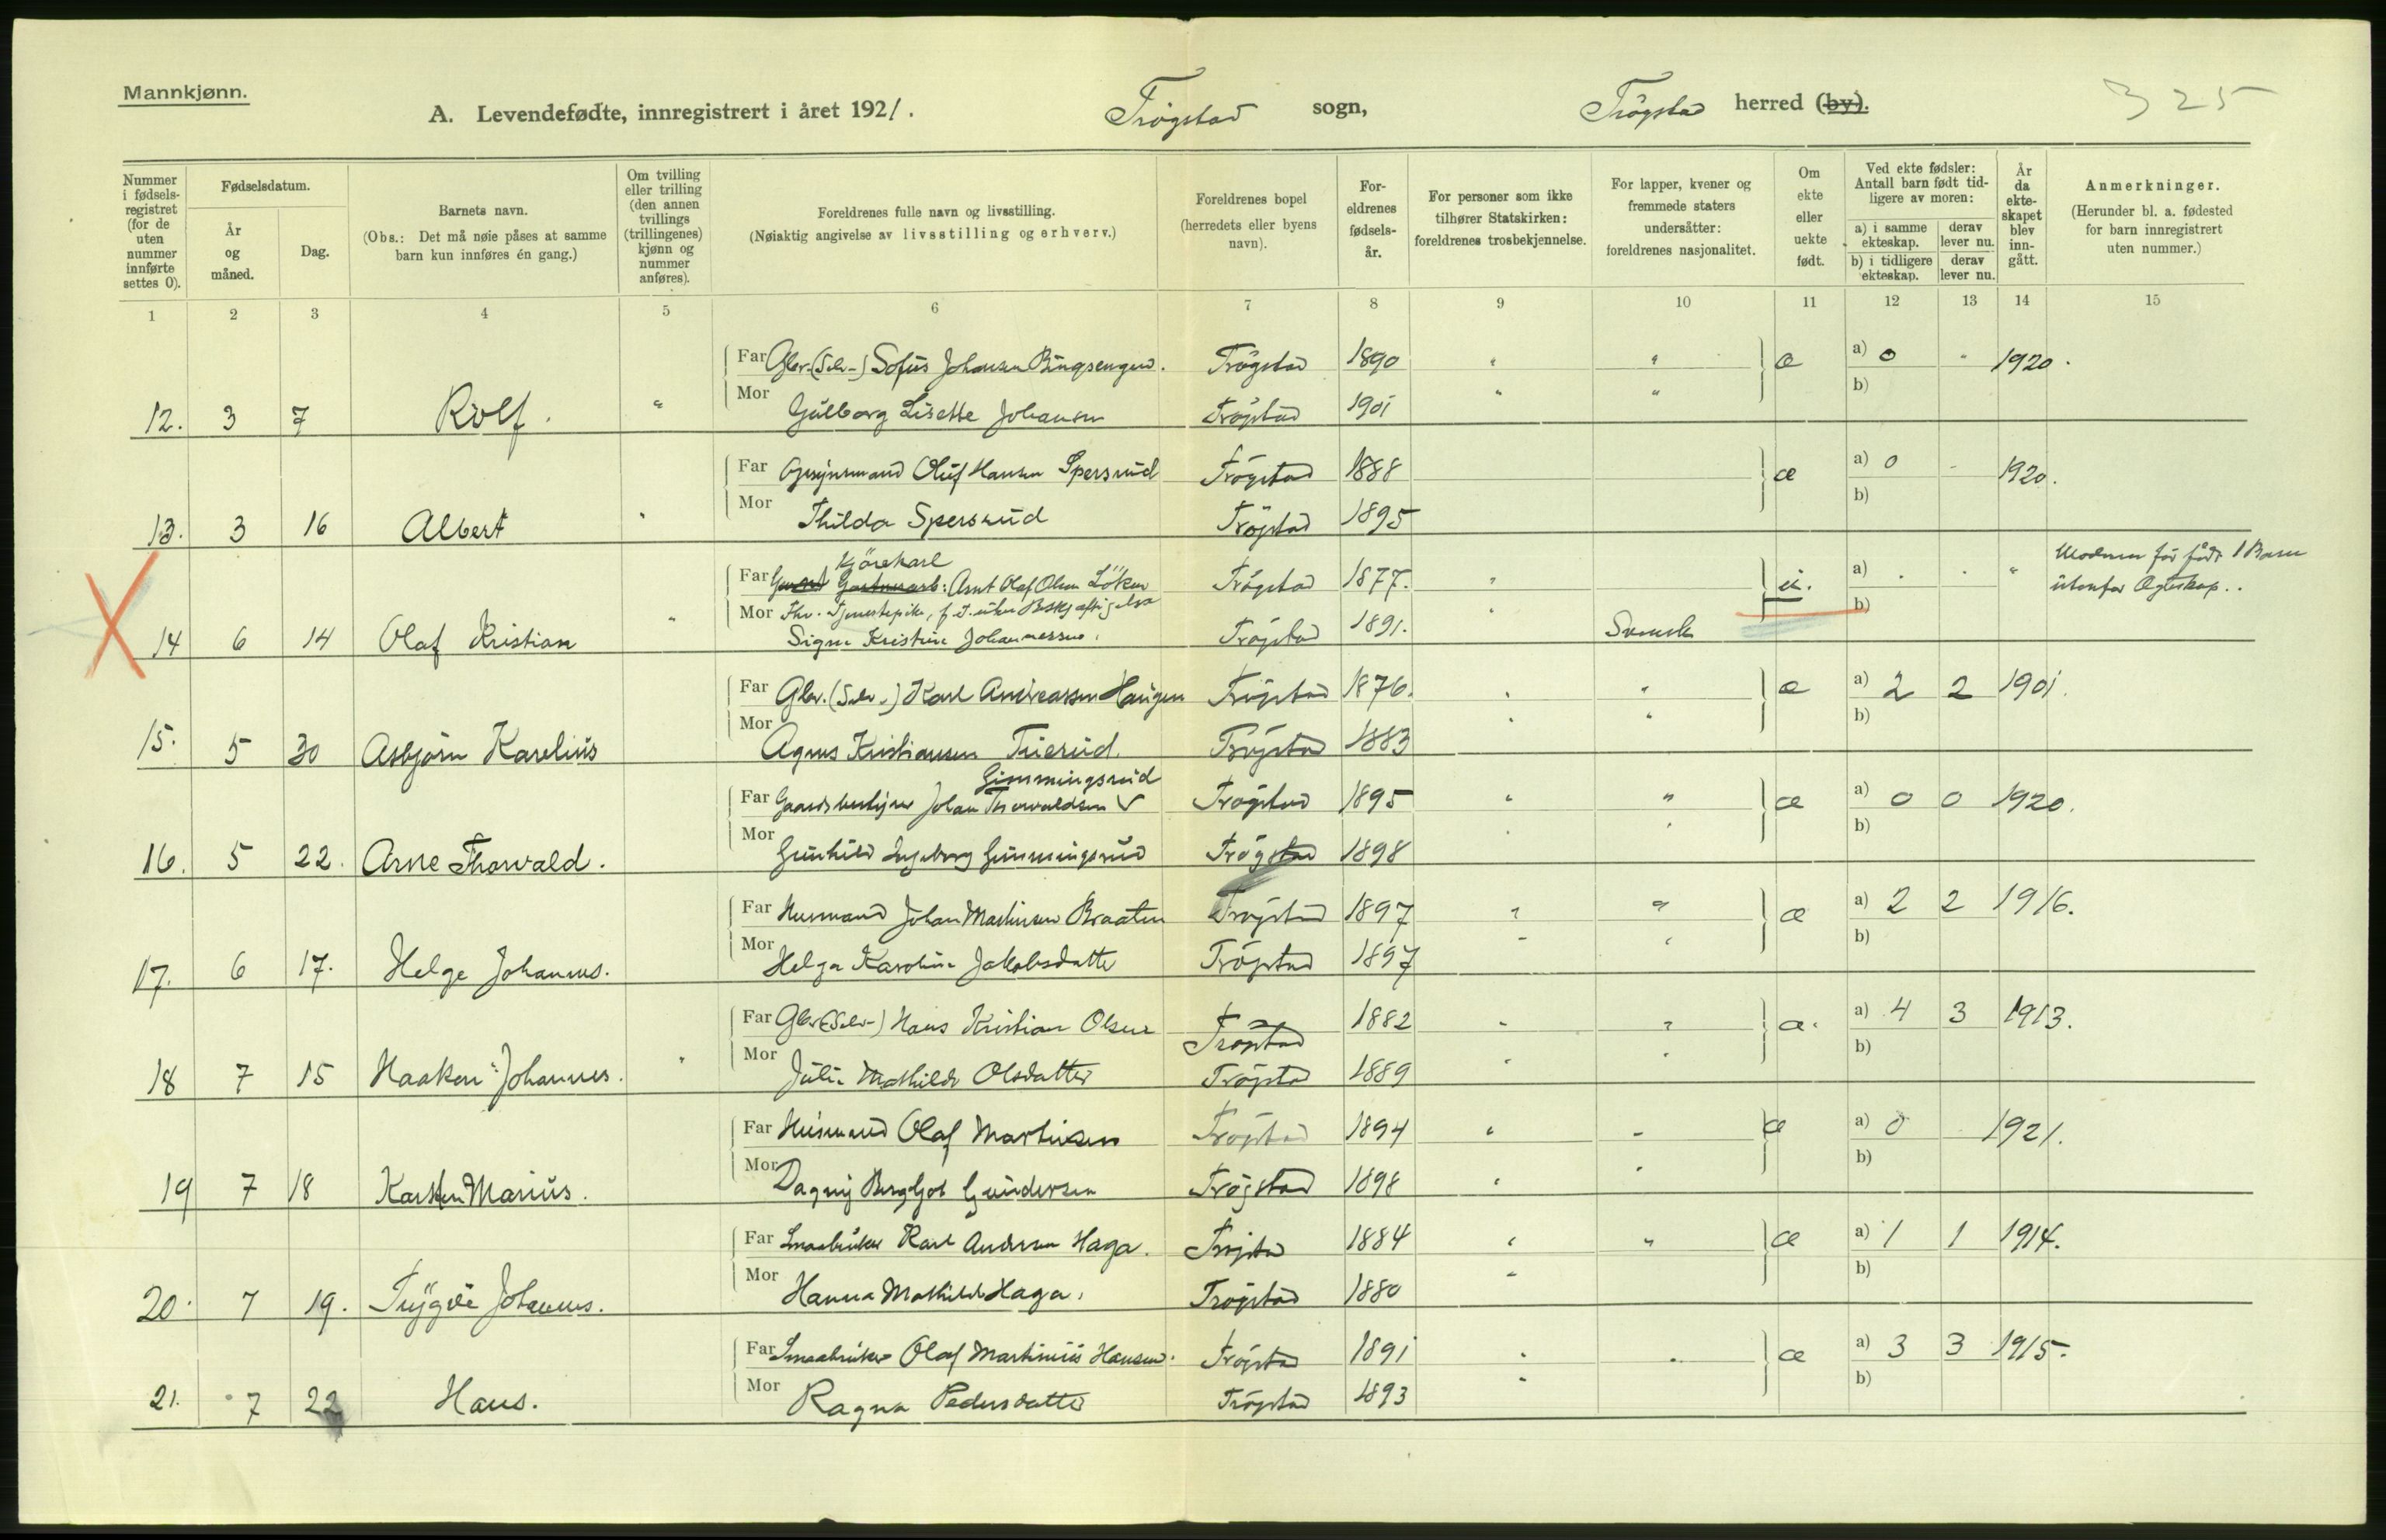 Mannkjønn.
A. Levendefødte, innregistrert i året 1921. Trögstad sogn, Trögstad herred (by). 325
Nummer i fødselsregistret (for de uten nummer innførte settes 0).
Fødselsdatum.
År og måned.
Dag.
Barnets navn.
(Obs.: Det må nøie påses at samme barn kun innføres én gang.)
Om tvilling eller trilling (den annen tvillings (trillingenes) kjønn og nummer anføres).
Foreldrenes fulle navn og livsstilling.
(Nøiaktig angivelse av livsstilling og erhverv.)
Foreldrenes bopel (herredets eller byens navn).
Foreldrenes fødselsår.
For personer som ikke tilhører Statskirken: foreldrenes trosbekjennelse.
For lapper, kvener og fremmede staters undersåtter: foreldrenes nasjonalitet.
Om ekte eller uekte født.
Ved ekte fødsler: Antall barn født tidligere av moren:
a) i samme ekteskap. derav lever nu.
b) i tidligere ekteskap. derav lever nu.
År da ekteskapet blev inngått.
Anmerkninger.
(Herunder bl. a. fødested for barn innregistrert uten nummer.)
1 2 3 4 5 6 7 8 9 10 11 12 13 14 15
Far Gbr. (Selv-) Sofus Johansen Trögstad 1890 " " æ a) 0 " 1920.
12. 3 7 Rolf. " Mor Gulborg Lisette Johansen Trögstad 1901 " " b)
Far Opsynsmand Oluf Hansen Spersrud Trögstad 1888 æ a) 0 - 1920.
13. 3 16 Albert " Mor Thilda Spersrud Trögstad 1895 b)
Kjörekarl
Far Gartnerarb: Arnt Olaf Olsen Löken Trögstad 1877. " u. a) . . " Moderen før født 1 Barn
Mor Fhv. Tjenestepike, f. T. uten Beskjæftigelse b) utenfor Ægteskap..
14 6 14 Olaf Kristian " Signe Kristine Johannessen. Trögstad 1891. " Svensk
Far Gbr. (Selv-) Karl Andreassen Haugen Trögstad 1876. " " æ a) 2 2 1901.
15. 5 30 Asbjörn Karelius Mor Agnes Kristiansen Trögstad 1883 " " b)
Gimmingsrud
Far Gaardsbestyrer Johan Thorvaldsen Trögstad 1895 " " æ a) 0 0 1920.
16. 5 22. Arne Thorvald. Mor Gunhild Ingeborg Gimmingsrud Trögstad 1898 " " b)
Far Husmand Johan Martinsen Braaten Trögstad 1897 " " æ a) 2 2 1916.
17. 6 17. Helge Johannes. Mor Helga Karoline Jakobsdatter Trögstad 1897 " " b)
Far Gbr. (Selv-) Hans Kristian Olsen Trögstad 1882 " " æ. a) 4 3 1913.
18 7 15 Haakon Johannes. " Mor Julie Mathilde Olsdatter Trögstad 1889 " " b)
Far Husmand Olaf Martinsen Trögstad 1894 " " æ a) 0 1921.
19 7 18 Karsten Marius. Mor Dagny Bergljot Gundersen Trögstad 1898 " " b)
Far Smaabruker Karl Andersen Haga. Trögstad 1884 " " æ a) 1 1 1914.
20. 7 19. Trygve Johannes. Mor Hanna Mathilde Haga. Trögstad 1880 " b)
Far Smaabruker Olaf Martinius Hansen. Trögstad 1891 " " æ a) 3 3 1915.
21. 7 22 Hans. Mor Ragna Pedersdatter Trögstad 1893 " b)